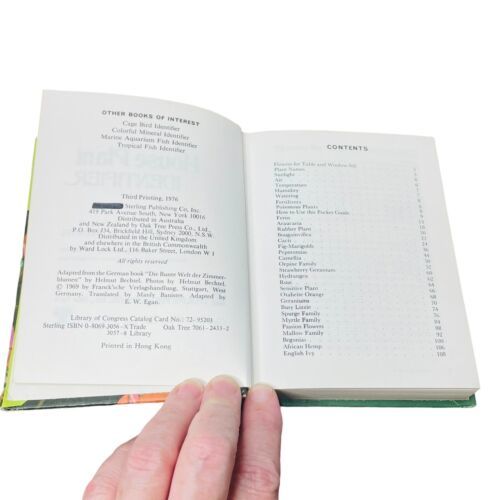 OTHER BOOKS OF INTEREST
Cage Bird Identifier
Colorful Mineral Identifier
Marine Aquarium Fish Identifier
Tropical Fish Identifier
Third Printing, 1976
Sterling Publishing Co., Inc.
419 Park Avenue South, New York 10016
Distributed in Australia
and New Zealand by Oak Tree Press Co., Ltd.,
P.O. Box J34, Brickfield Hill, Sydney 2000, N.S.W.
Distributed in the United Kingdom
and elsewhere in the British Commonwealth
by Ward Lock Ltd., 116 Baker Street, London W 1
All rights reserved
Adapted from the German book "Die Bunte Welt der Zimmer-
blumen" by Helmut Bechtel. Photos by Helmut Bechtel,
© 1969 by Franckh'sche Verlagshandlung, Stuttgart, West
Germany. Translated by Manly Banister. Adapted by
E. W. Egan.
Library of Congress Catalog Card No.: 72-95203
Sterling ISBN 0-8069-3056-X Trade Oak Tree 7061-2433-2
3057-8 Library
Printed in Hong Kong
CONTENTS
Flowers for Table and Window Sill
Plant Names
Sunlight
Air
Temperature
Humidity
Watering
Fertilizers
Poisonous Plants
How to Use the Pocket Guide
Ferns
Araucaria
Rubber Plant
Bougainvillea
Cacti
Fig-Marigolds
Peperomias
Camellia
Orpine Family
Strawberry Geranium
Hydrangea
Rose
Sensitive Plant
Otaheite Orange
Geraniums
Busy Lizzie
Spurge Family 74
Myrtle Family 92
Passion Flowers 94
Mallow Family
Begonias
African Hemp
English Ivy 108